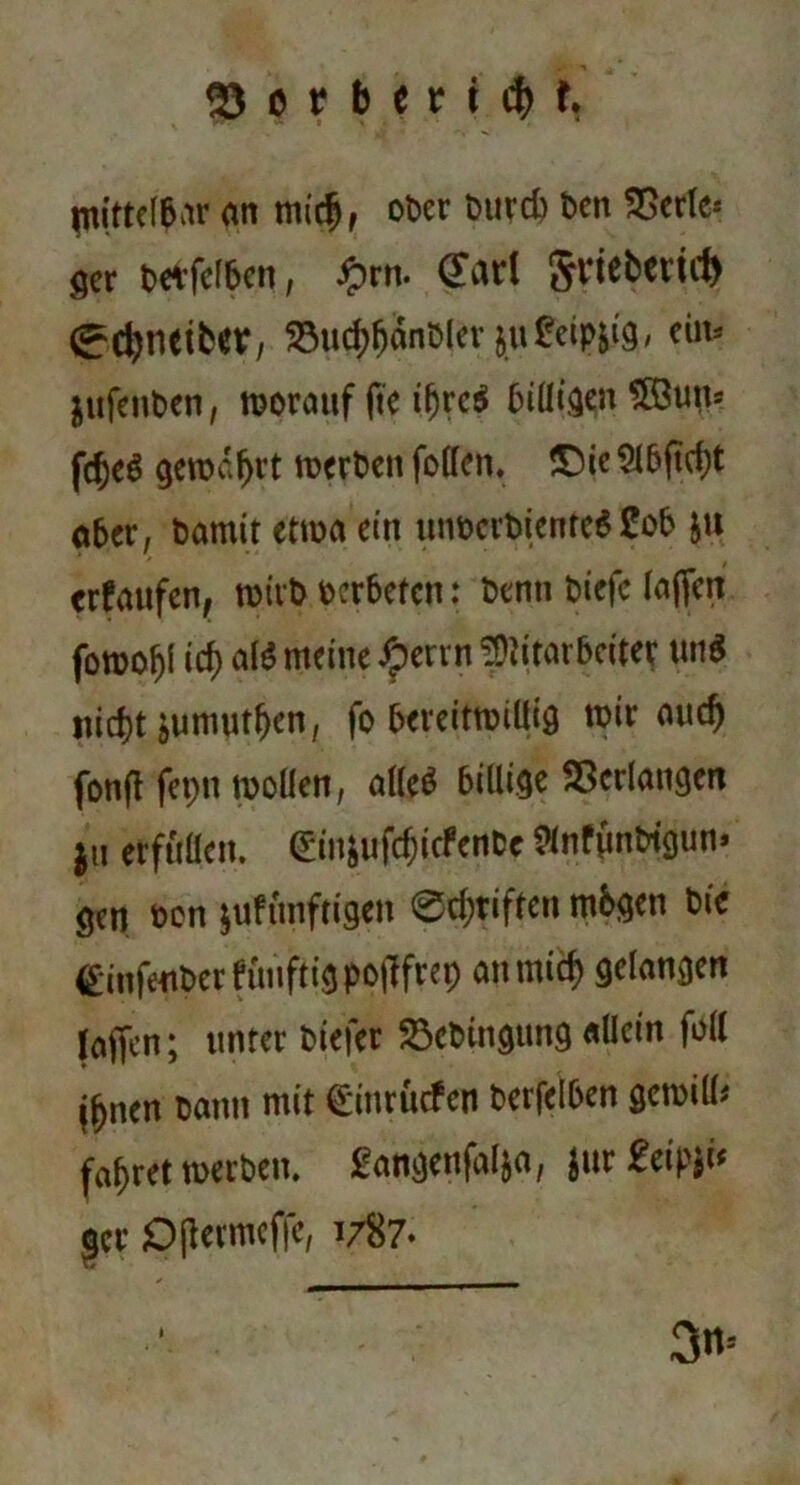 Vorbericht.
mittelbar an mich, oder durch den Verle-
ger derselben, Hrn. Carl Friederich
Schneider, Buchhändler zu Leipzig, ein-
zusenden, worauf sie ihres billigen Wun-
sches gewährt werden sollen. Die Absicht
aber, damit etwa ein unverdientes Lob zu
erkaufen, wird verbeten: denn diese lassen
sowohl ich als meine Herrn Mitarbeiter uns
nicht zumuthen, so bereitwillig wir auch
sonst seyn wollen, alles billige Verlangen
zu erfüllen. Einzuschickende Ankündigun-
gen von zukünftigen Schriften mögen die
Einsender künftig postfrey an mich gelangen
lassen; unter dieser Bedingung allein soll
ihnen dann mit Einrücken derselben gewill-
fahret werden. Langensalza, zur Leipzi-
ger Ostermesse, 1787.
In-